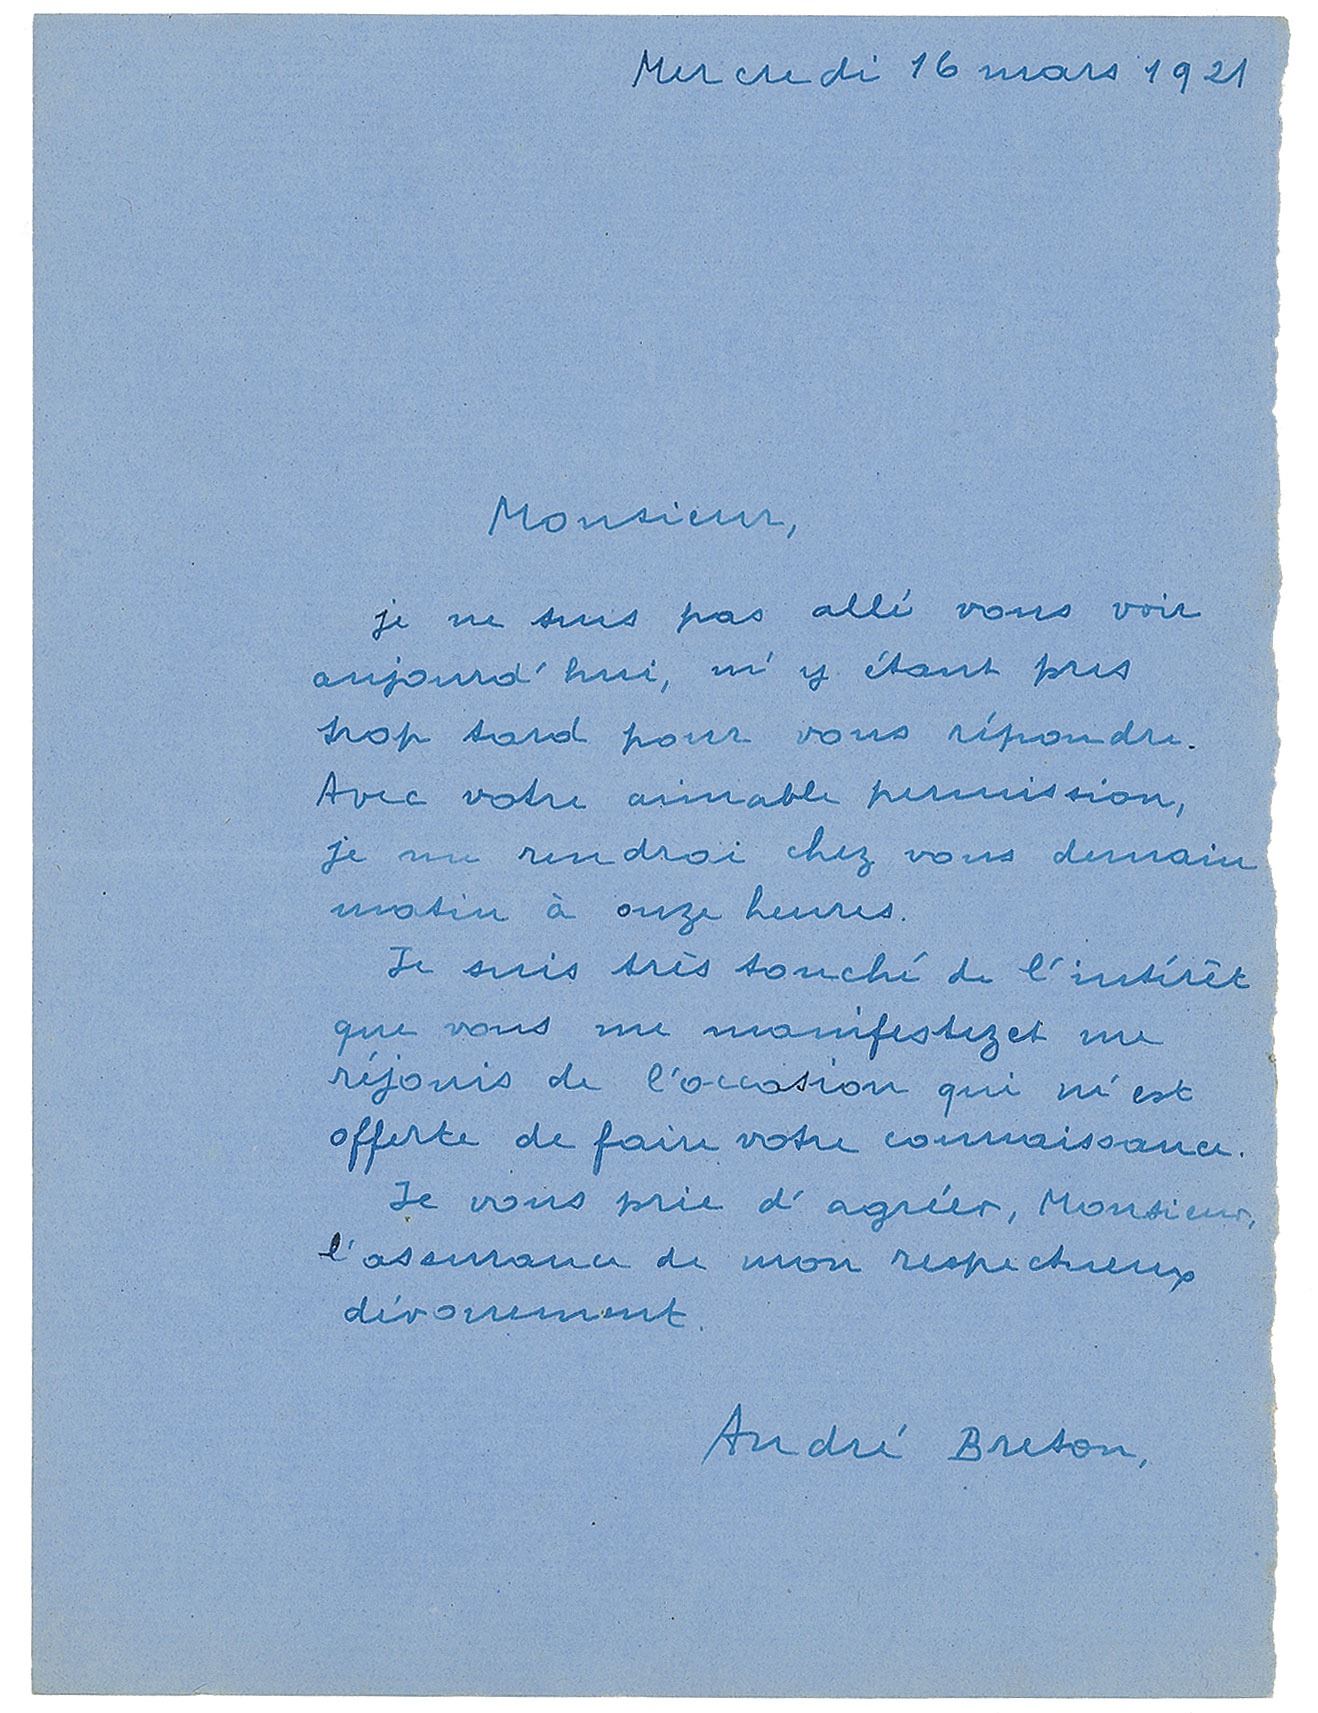 Mercredi 16 mars 1921
Monsieur,
je ne suis pas allé vous voir
aujourd'hui, m'y étant pris
trop tard pour vous répondre.
Avec votre aimable permission,
je me rendrai chez vous demain
matin à onze heures.
Je suis très touché de l'intérêt
que vous me manifestez et me
réjouis de l'occasion qui m'est
offerte de faire votre connaissance.
Je vous prie d'agréer, Monsieur,
l'assurance de mon respectueux
dévouement.
André Breton,